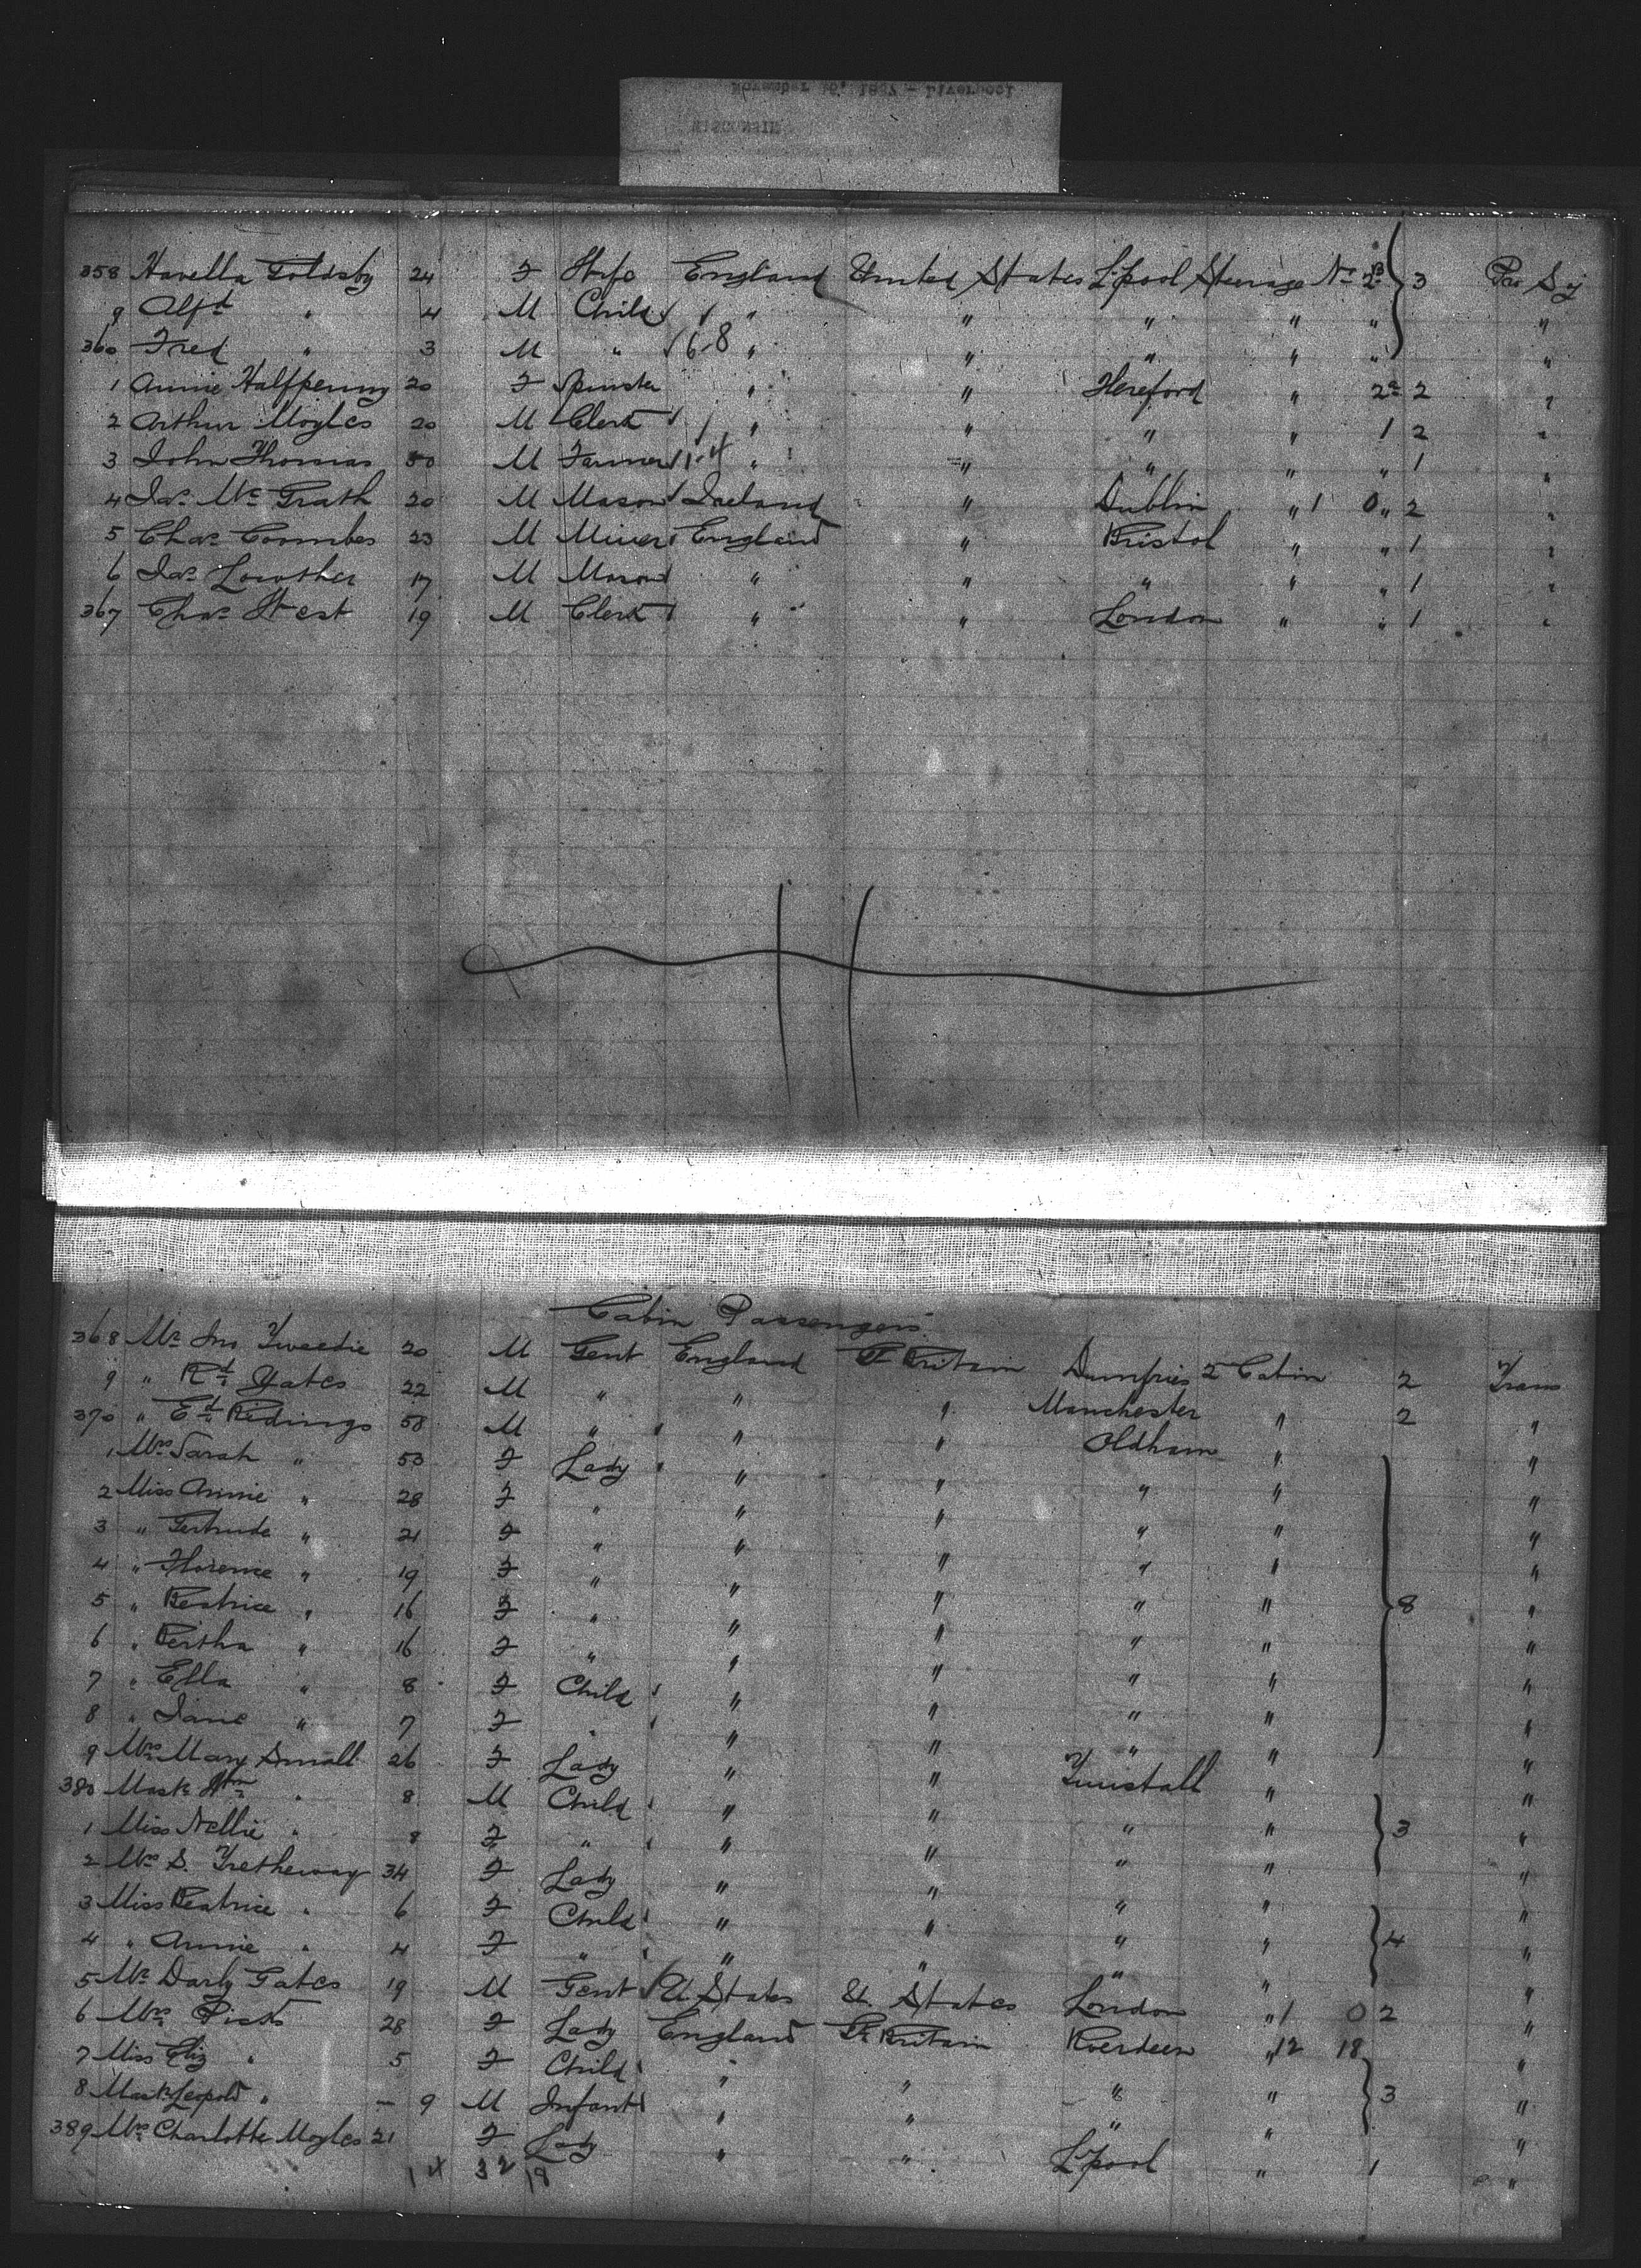 November 16, 1887 - Liverpool
WISCONSIN
358 Goldsby 24 F Wife England United States L'pool Steerage No 2B 3 Pro Sj
9 Alfd " 4 M Child " " " " "
360 Fred " 3 M " 6-8 " " " " " "
1 Annie Halfpenny 20 F Spinster " " Hereford " 2a 2 "
2 Arthur Moyles 20 M Clerk " " " " 1 2 "
3 John Thomas 50 M Farmer 1-4 " " " " " 1 "
4 Jas Mc Grath 20 M Mason Ireland " Dublin " 1 0 " 2 "
5 Chas Coombes 23 M Miner England " Bristol " " 1 "
6 Jas Lowther 17 M Mason " " " " " 1 "
367 Chas West 19 M Clerk " " London " " 1 "
Cabin Passengers
368 Mr Jno Tweedie 20 M Gent England Gt Britain Dumfries 2 Cabin 2 Trans
9 " Rd Yates 22 M " " " Manchester " 2 "
370 " Ed Ridings 58 M " " " Oldham " "
1 Mrs Sarah " 53 F Lady " " " " "
2 Miss Annie " 28 F " " " " " "
3 " Gertrude " 21 F " " " " " "
4 " Florence " 19 F " " " " " "
5 " Beatrice " 16 F " " " " " 8 "
6 " Bertha " 16 F " " " " " "
7 " Ella " 8 F Child " " " " "
8 " Jane " 7 F " " " " " "
9 Mrs Mary Small 26 F Lady " " Tunstall " "
380 Mastr Wm " 8 M Child " " " " "
1 Miss Nellie " 8 F " " " " " 3 "
2 Mrs S. Tretheway 34 F Lady " " " " "
3 Miss Beatrice " 6 F Child " " " " "
4 " Annie " 4 F " " " " " 4 "
5 Mr Darly Gates 19 M Gent U States U. States London " 1 0 2 "
6 Mrs 28 F Lady England Gt Britain Aberdeen " 12 18 "
7 Miss Eliz " 5 F Child " " " " "
8 Mastr Leopold " - 9 M Infant " " " " 3 "
389 Mrs Charlotte Moyles 21 F Lady " " L'pool " 1 "
14 32 18